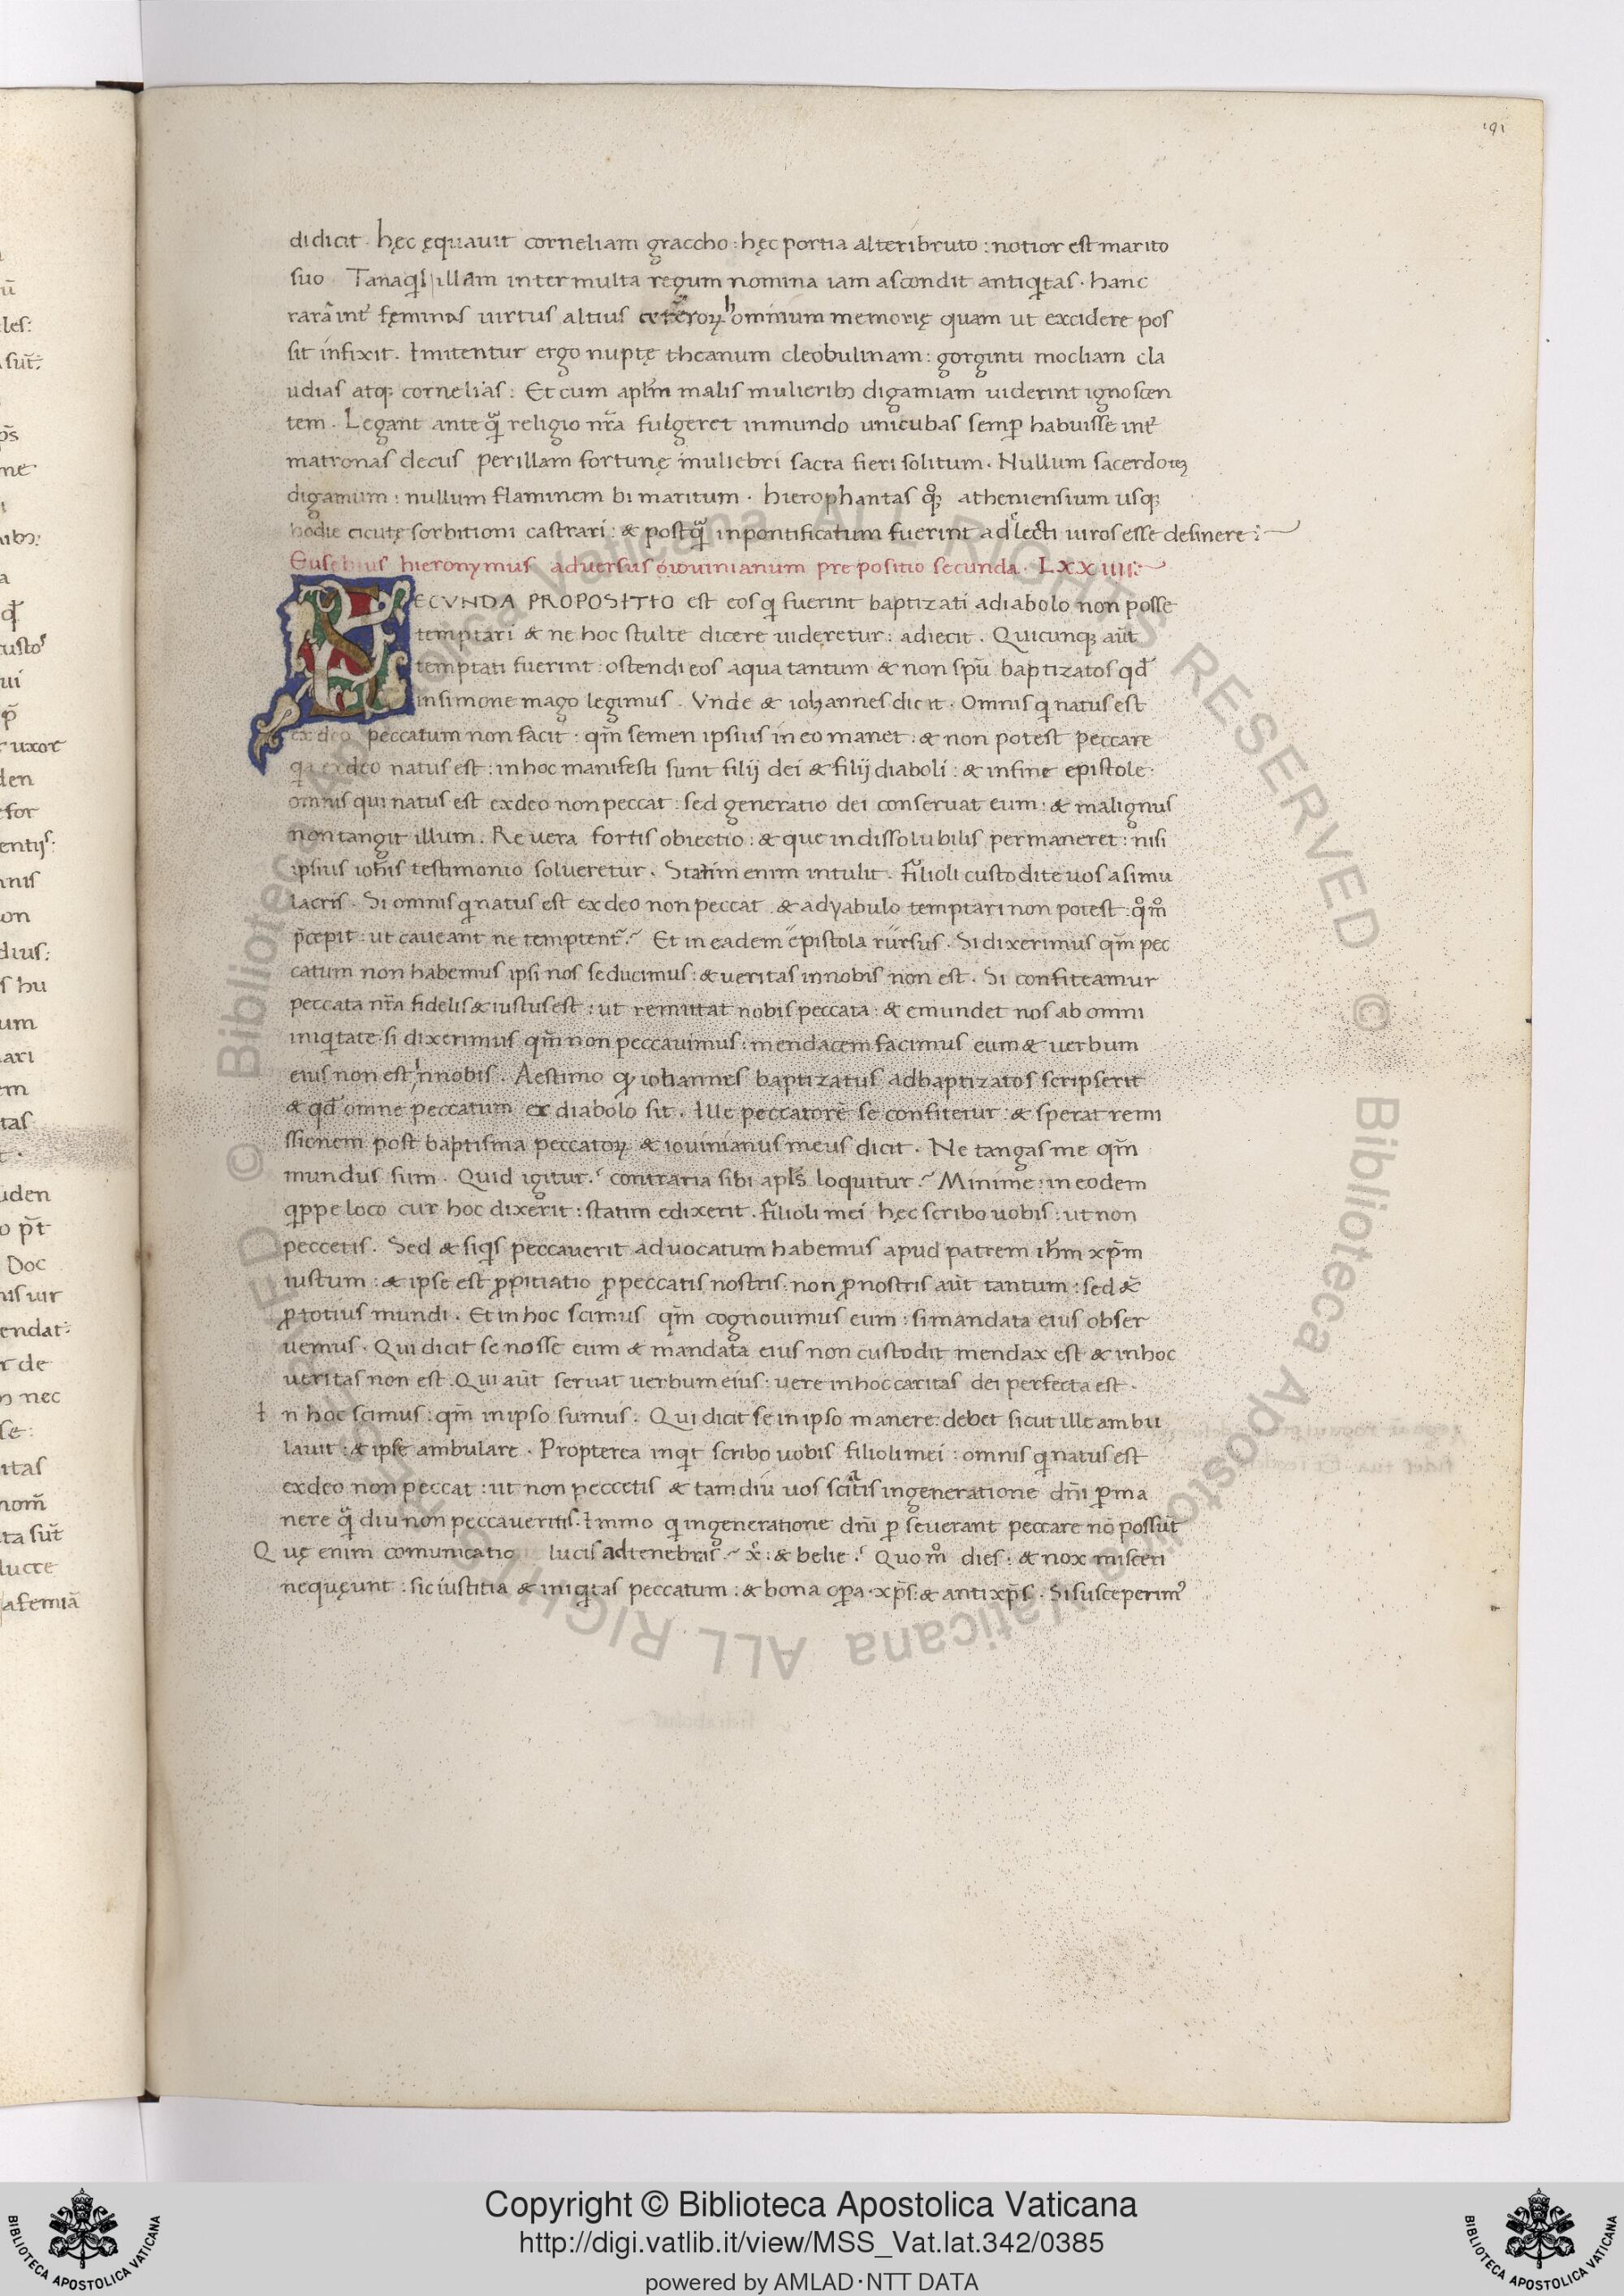 191
didicit · hęc ęquauit corneliam graccho : hęc portia alteri bruto : notior est marito
suo Tanaqͥl illam inter multa regum nomina iam ascondit antiqͥtas · hanc
rarā int̉ feminas uirtus altius ceteroꝝ hominum memorię quam ut excidere pos
sit infixit . Imitentur ergo nuptę theanum cleobulinam : gorginti mocliam cla
udias atqꝫ cornelias : Et cum apl̄m malis mulieribꝫ digamiam uiderint ignoscen
tem . Legant ante qͣ̄ religio nr̄a fulgeret in mundo unicubas semꝑ habuisse int̉
matronas decus per illam fortunę muliebri sacra fieri solitum . Nullum sacerdotꝫ
digamum : nullum flaminem bi maritum . hierophantas qͦꝫ atheniensium usqꝫ
hodie cicutę sorbitioni castrari : & postqͣ̄ in pontificatum fuerint adlecti uiros esse desinere :
Eusebius hieronymus aduersus o iouinianum pre positio secunda . LXXIIII :
SECVNDA PROPOSITIO est eos qͥ fuerint baptizati a diabolo non posse
temptari & ne hoc stulte dicere uideretur : adiecit . Quicunqꝫ aūt
temptati fuerint : ostendi eos aqua tantum & non spū baptizatos qd̄
in simone mago legimus . Vnde & iohannes dicit . Omnis qͥ natus est
ex deo peccatum non facit : qm̄ semen ipsius in eo manet : & non potest peccare
qͥa ex deo natus est : in hoc manifesti sunt filij dei & filij diaboli : & in fine epistole .
omnis qui natus est ex deo non peccat : sed generatio dei conseruat eum : & malignus
non tangit illum . Re uera fortis obiectio : & que indissolubilis permaneret : nisi
ipsius ioh̄is testimonio solueretur . Statim enim intulit . filioli custodite uos a simu
lacris . Si omnis qͥ natus est ex deo non peccat & a dyabulo temptari non potest : qͦmͦ
p̄cepit : ut caueant ne temptent̉ . Et in eadem epistola rursus . Si dixerimus qm̄ pec
catum non habemus ipsi nos seducimus : & ueritas in nobis non est . Si confiteamur
peccata nr̄a fidelis & iustus est : ut remittat nobis peccata : & emundet nos ab omni
iniqͥtate . si dixerimus qm̄ non peccauimus : mendacem facimus eum & uerbum
eius non est innobis . Aestimo ꝙ iohannes baptizatus ad baptizatos scripserit
& qd̄ omne peccatum ex diabolo sit . Ille peccatorē se confitetur : & sperat remi
ssionem post baptisma peccatoꝝ & iouinianus meus dicit . Ne tangas me qm̄
mundus sum . Quid igitur . contraria sibi apl̄s loquitur . Minime : in eodem
qͥppe loco cur hoc dixerit : statim edixerit . filioli mei hęc scribo uobis : ut non
peccetis . Sed & siqͥs peccauerit aduocatum habemus apud patrem ih̄m xp̄m
iustum : & ipse est ꝓpitiatio ꝓ peccatis nostris : non ꝓ nostris aūt tantum : sed &
ꝓ totius mundi . Et in hoc scimus qm̄ cognouimus eum : si mandata eius obser
uemus . Qui dicit se nosse eum & mandata eius non custodit mendax est & in hoc
ueritas non est . Qui aūt seruat uerbum eius : uere in hoc caritas dei perfecta est .
In hoc scimus : qm̄ in ipso sumus . Qui dicit se in ipso manere : debet sicut ille ambu
lauit : & ipse ambulare . Propterea inqͥt scribo uobis filioli mei : omnis qͥ natus est
ex deo non peccat : ut non peccetis & tam diu uos sciatis in generatione dn̄i ꝑma
nere qͣ̄ diu non peccaueritis . Immo qͥ in generatione dn̄i ꝑseuerant peccare nō possūt
Quę enim comunicatio lucis ad tenebras . xͬ : & belie . Quo mͦ dies : & nox misceri
nequęunt : sic iustitia & iniqͥtas peccatum : & bona oꝑa . xp̄s : & anti xp̄s . Si susceperimꝰ
Copyright © Biblioteca Apostolica Vaticana
http://digi.vatlib.it/view/MSS_Vat.lat.342/0385
powered by AMLAD·NTT DATA